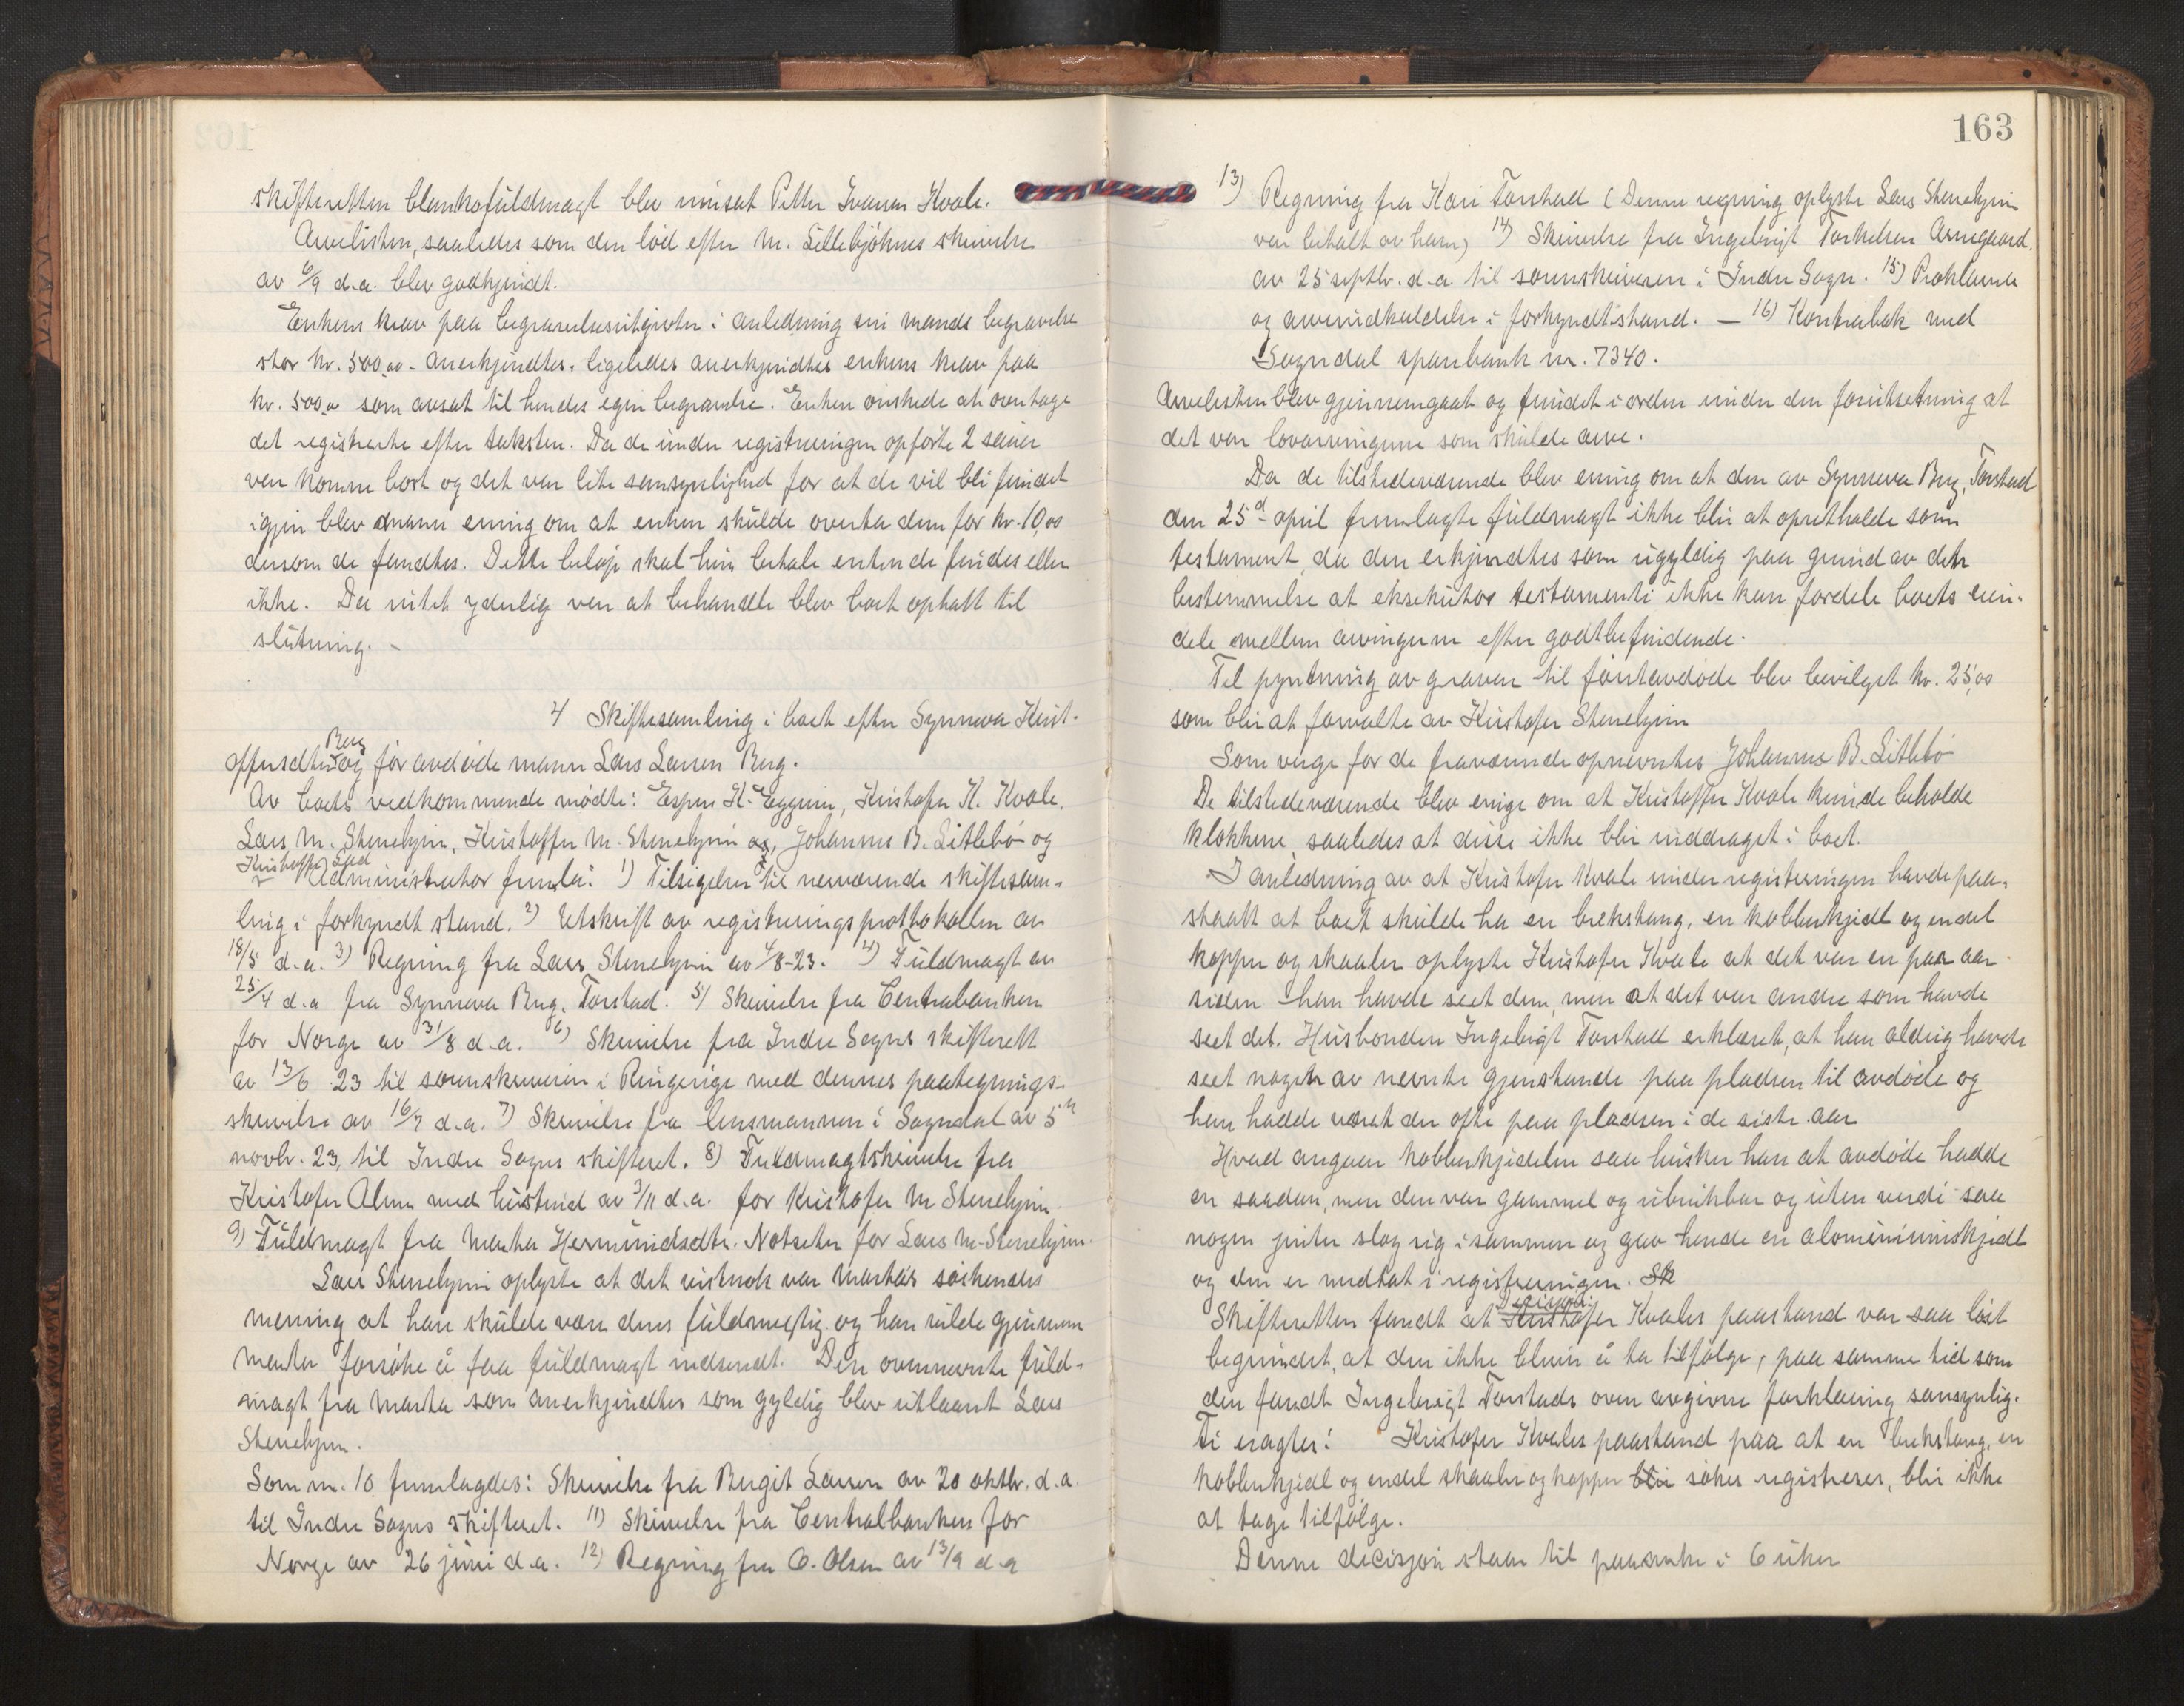 skifteretten blankofuldmagt blev innsat Petter Ivarson Kvale.
Arvelisten, saaledes som den lød efter M. Lillebjöhnes skrivelse
av 6/9 d.a. blev godkjendt.
Enkens krav paa begravelsesutgivter i anledning sin mands begravelse
stor kr. 500,00. anerkjendtes. ligeledes anerkjendtes enkens krav paa
kr. 500,00 som avsat til hendes egen begravelse. Enken ønskede at overtage
det registrerte efter taksten. Da de under registreringen opførte 2 sauer
var komne bort og det var lite sansynlighed for at de vil bli fundet
igjen blev man enig om at enken skulde overta dem for kr. 10,00
dersom de fandtes. Dette beløp skal hun betale enten de findes eller
ikke. Da intet yderlig var at behandle blev boet ophatt til
slutning. -
4 Skiftesamling i boet efter Synneva Krist-
offersdtr Berg og før avdøde mann Lars Larsen Berg.
Av boets vedkommende mødte: Espen K. Eggum, Kristofer K. Kvale,
Lars M. Stenehjem, Kristoffer M. Stenehjem og, Johannes B. Litlebö og
Kristoffer
Administrator fremla: 1) Tilsigelser til nerværende skiftesam-
ling i forkyndt stand. 2) Utskrift av registreringsprottokollen av
18/5 d.a. 3) Regning fra Lars Stenehjem av 4/8-23. 4) Fuldmagt av
25/4 d.a fra Synneva Berg, Torstad. 5) Skrivelse fra Centralbanken
for Norge av 31/8 d.a. 6) Skrivelse fra Indre Sogns skifterett
av 13/6 23 til sorenskriveren i Ringerige med dennes paategnings-
skrivelse av 16/7 d.a. 7) Skrivelse fra lensmannen i Sogndal av 5te
novbr. 23, til Indre Sogns skifteret. 8) Fuldmagtskrivelse fra
Kristofer Alme med hustrud av 3/11 d.a. for Kristofer M Stenehjem.
9) Fuldmagt fra Marta Hermundsdtr. Notseter for Lars M. Stenehjem.
Lars Stenehjem oplyste at det visstnok var Martas søskendes
mening at han skulde være deres fuldmegtig og han vilde gjennem
Marta forsøke å faa fuldmagt indsendt. Den ovennevnte fuld-
magt fra Marta som anerkjendtes som gyldig blev utlaant Lars
Stenehjem.
Som nr. 10 fremlagdes: Skrivelse fra Bergit Larsen av 20 oktbr. d.a.
til Indre Sogns skifteret. 11) Skrivelse fra Centralbanken for
Norge av 26 juni d.a. 12) Regning fra O. Olsen av 13/9 d.a
163
13) Regning fra Kari Torstad (Denne regning oplyste Lars Stenehjem
var betalt av ham) 14) Skrivelse fra Ingebrigt Torkelsen Aaregaard.
av 25 septbr. d.a. til sorenskriveren i Indre Sogn. 15) Proklama
og arveindkaldelse i forkyndtstand. — 16) Kontrabok med
Sogndal sparebank nr. 7340.
Arvelisten blev gjennemgaat og fundet i orden under den forutsetning at
det var lovarvingerne som skulde arve.
Da de tilstedeværende blev ening om at den av Synneva Berg, Torstad
den 25d april fremlagte fuldmagt ikke blir at opretholde som
testament, da den erkjendtes som ugyldig paa grund av den
bestemmelse at eksekutor testamenti ikke kan fordele boets eien-
dele mellem arvingerne efter godtbefindende.
Til pyntning av graven til førstavdøde blev bevilget kr. 25,00
som blir at forvalte av Kristofer Stenehjem
Som verge for de fraværende opnevntes Johannes B. Litlebö
De tilstedeværende blev enige om at Kristoffer Kvale kunde beholde
klokkene, saaledes at disse ikke blir inddraget i boet.
I anledning av at Kristofer Kvale under registreringen havde paa-
staatt at boet skulde ha en brekstang, en kobberkjedl og endel
kopper og skaaler oplyste Kristofer Kvale at det var en paar aar
siden han havde seet dem, men at det var andre som havde
seet det. Husbonden Ingebrigt Torstad erklæret, at han aldrig havde
seet nogen av nevnte gjenstande paa pladsen til avdøde og
han hadde været der ofte paa pladsen i de siste aar
Hvad angaar kobberkjedelen saa husker han at avdøde hadde
en saadan, men den var gammel og ubrukbar og uten verdi saa
nogen jenter slog sig isammen og gav hende en alominiumskjedl
og den er medtat i registreringen. Sk
Decisjon:
Skifteretten fandt at Kristofer Kvales paastand var saa løst
begrundet, at den ikke blev å ta tilfølge, paa samme tid som
den fandt Ingebrigt Torstads oven avgivne forklaring sansynlig.
Ti eragtes: Kristofer Kvales paastand paa at en brekstang, en
kobberkjedl og endel skaaler og kopper blir søkes registreres, blir ikke
at tage tilfølge.
Denne decisjon staar til paaanke i 6 uker